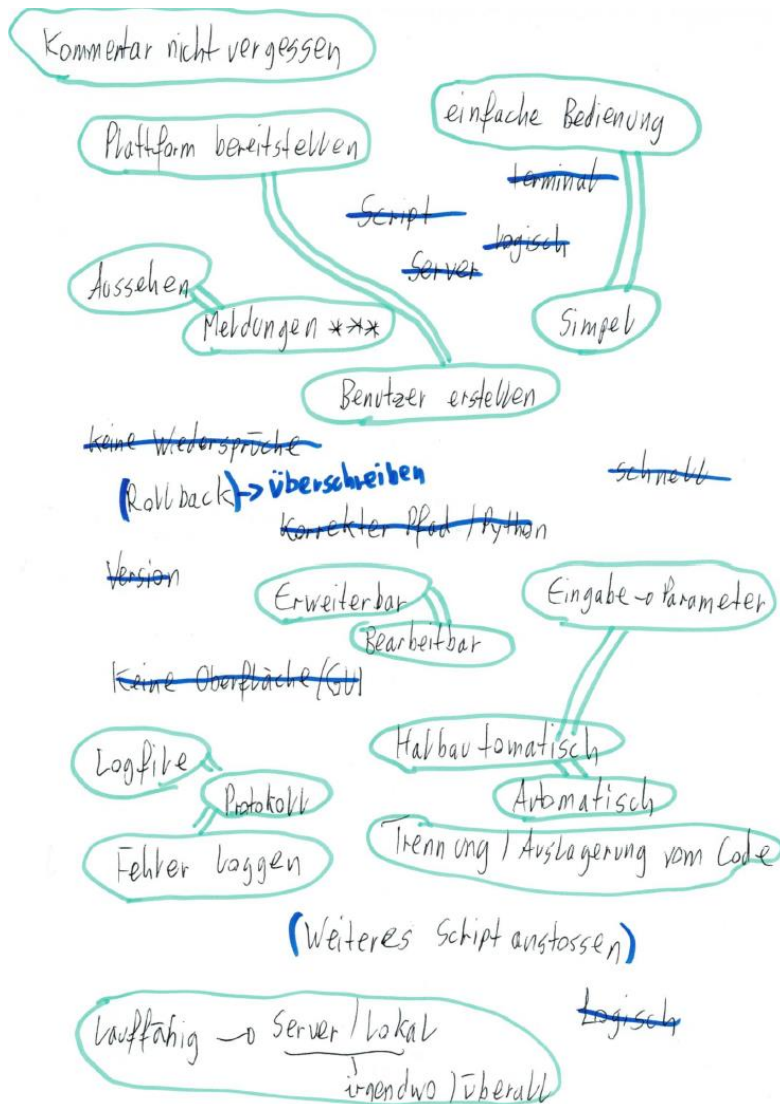 Kommentar nicht vergessen
einfache Bedienung
Plattform bereitstellen
terminal
Script
Logisch
Server
Aussehen
Meldungen ***
Simpel
Benutzer erstellen
keine Wiedersprüche
schnell
(Rollback) -> überschreiben
Korrekter Pfad / Python
Version
Erweiterbar
Eingabe → Parameter
Bearbeitbar
Keine Oberfläche/GUI
Logfile
Halbautomatisch
Protokoll
Automatisch
Fehler loggen
Trennung / Auslagerung vom Code
(Weiteres Script anstossen)
Logisch
Lauffähig → Server / Lokal
irgendwo / überall